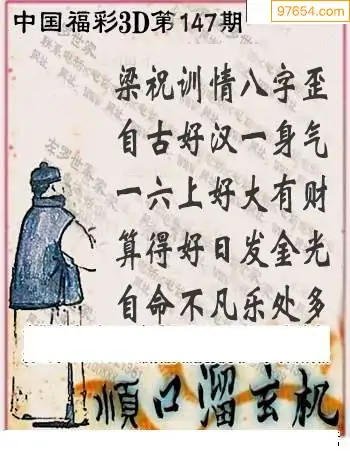 97654.com
中国福彩3D第147期
梁祝训情八字歪
自古好汉一身气
一六上好大有财
算得好日发金光
自命不凡乐处多
順口溜玄机